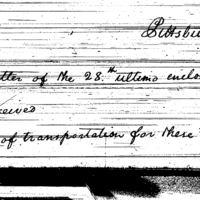 Pittsbu
tter of the 28th ultimo enclo
ceived
of transportation for these